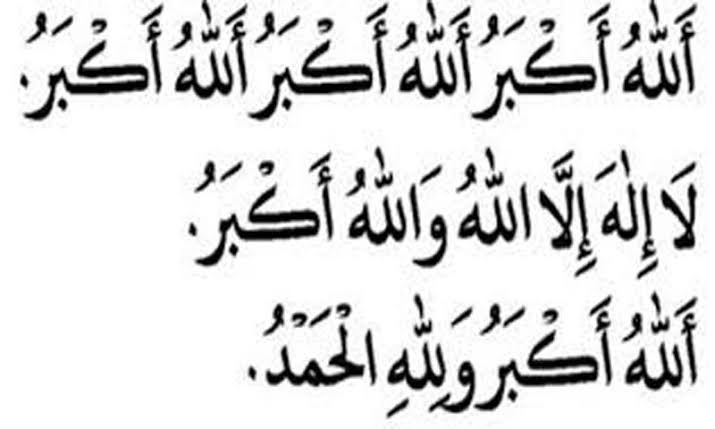 أَللّٰهُ أَكْبَرُ أَللّٰهُ أَكْبَرُ أَللّٰهُ أَكْبَرُ.
لَا إِلٰهَ إِلَّا اللّٰهُ وَاللّٰهُ أَكْبَرُ.
أَللّٰهُ أَكْبَرُ وَلِلّٰهِ الْحَمْدُ.